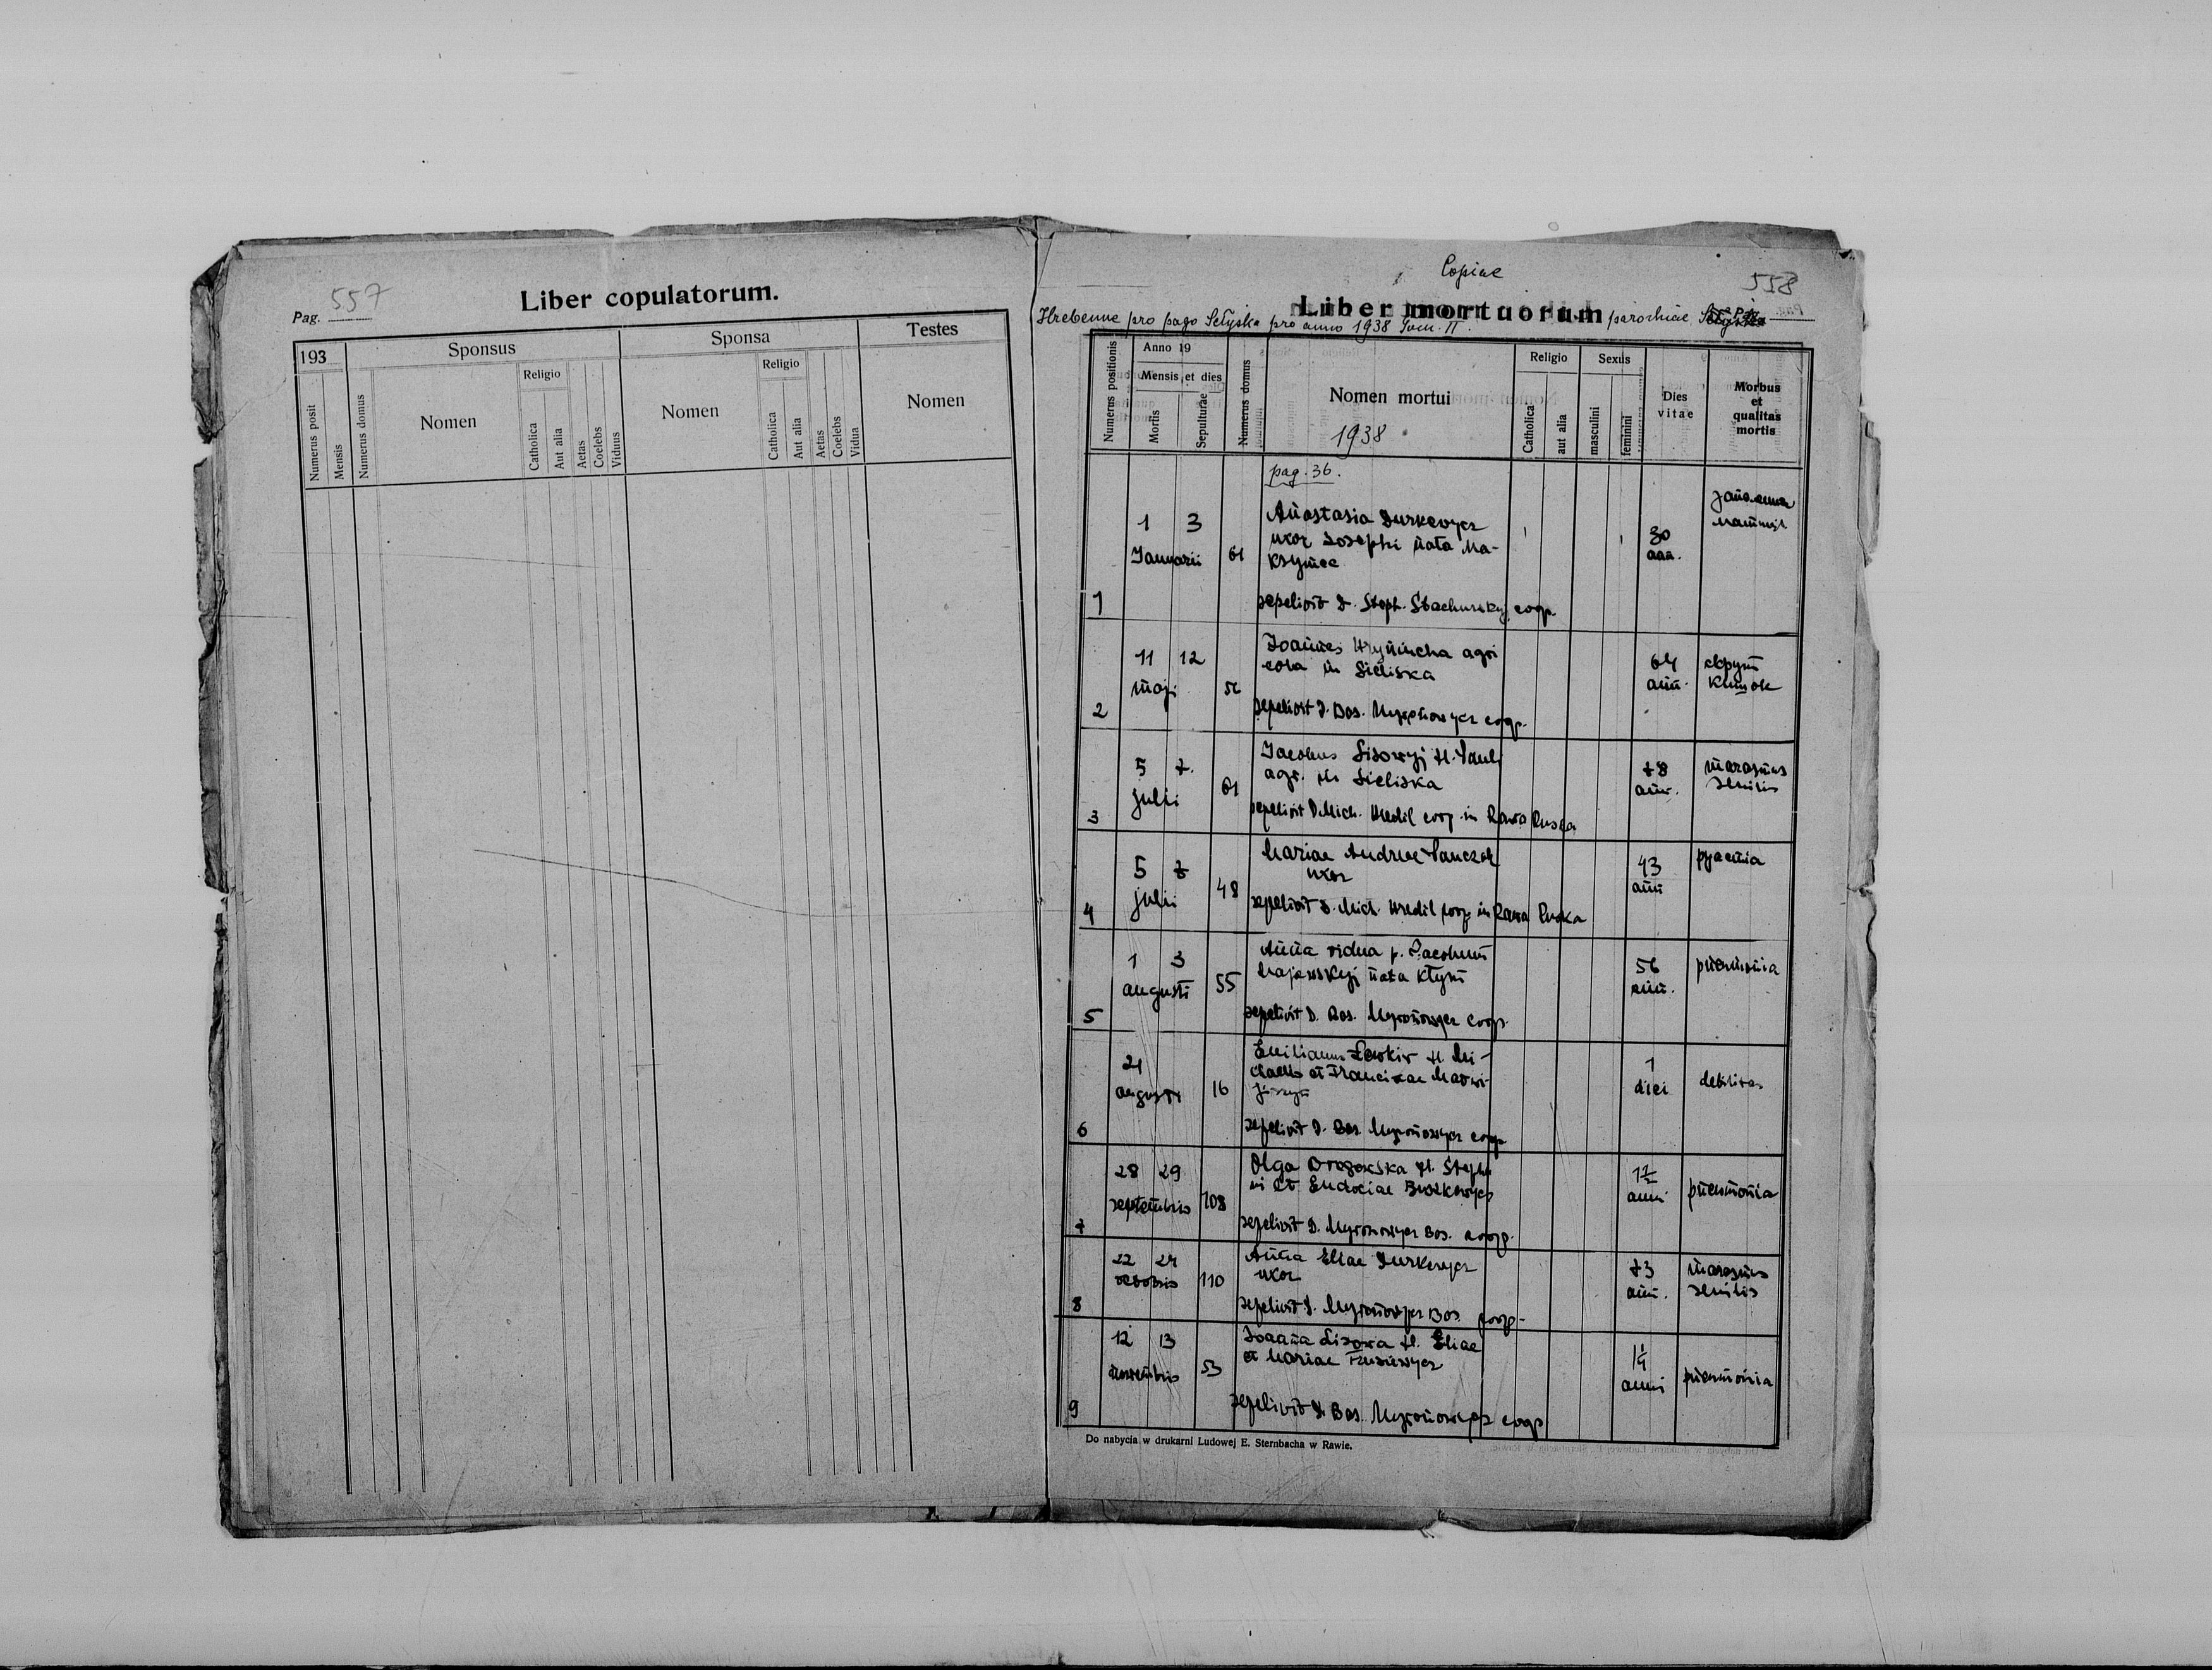 Pag. 557
Liber copulatorum.
193
Sponsus
Sponsa
Testes
Numerus posit
Mensis
Numerus domus
Nomen
Religio
Catholica
Aut alia
Aetas
Coelebs
Viduus
Nomen
Religio
Catholica
Aut alia
Aetas
Coelebs
Vidua
Nomen
Copiae
558
Liber mortuorum parochiae
Hrebenne pro pago Sełyska pro anno 1938 Tom. II.
Numerus positionis
Anno 19
Mensis et dies
Mortis
Sepulturae
Numerus domus
Nomen mortui
1938
Religio
Catholica
aut alia
Sexus
masculini
feminini
Dies
vitae
Morbus
et
qualitas
mortis
pag. 36.
1 3
Januarii 61
Anastasia Durkewycz
uxor Josephi nata Ma-
ksymec
80
ann.
1 sepelivit D. Steph. Stachurskyj coop.
11 12
maji 56
Joannes agri
cola in Sieliska
64
ann.
2 sepelivit D. Bas. Myronowycz coop.
5 7.
julii 61
Jacobus Lisowyj fl. Pauli
agr. in Sieliska
78
ann.
marasmus
senilis
3 sepelivit D. Mich. Kredil coop. in Rawa Ruska
5 7
julii 48
Mariae Andreae Panczak
uxor
43
ann
pyaemia
4 sepelivit D. Mich. Kredil coop in Rawa Ruska
1 3
augusti 55
Anna vidua p. Jacobum
Majewskyj nata Kłym
56
ann.
pneumonia
5 sepelivit D. Bas. Myronowycz coop.
21
augusti 16
Emilianus Lewkiw fl. Mi-
chaelis et Franciscae
1
diei
debilitas
6 sepelivit D. Bas. Myronowycz coop
28 29
septembris 108
Olga fl. Stepha
ni et Eudociae
anni
pneumonia
7 sepelivit D. Myronowycz Bas. coop.
22 24
octobris 110
Anna Eliae Durkewycz
uxor
73
ann.
marasmus
senilis
8 sepelivit D. Myronowycz Bas. coop.
12 13
novembris 53
Joanna Lisowa fl. Eliae
et Mariae
anni
pneumonia
9 sepelivit D. Bas. Myronowycz coop
Do nabycia w drukarni Ludowej E. Sternbacha w Rawie.